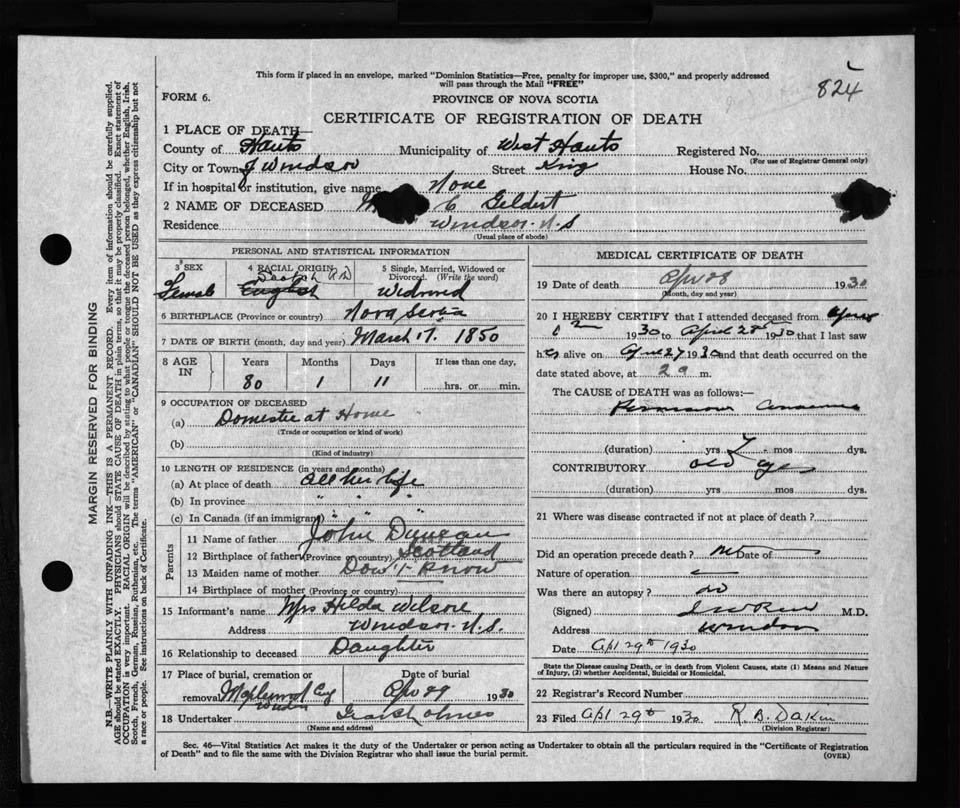 824
This form if placed in an envelope, marked "Dominion Statistics—Free, penalty for improper use, $300," and properly addressed
will pass through the Mail "FREE"
FORM 6.
PROVINCE OF NOVA SCOTIA
CERTIFICATE OF REGISTRATION OF DEATH
1 PLACE OF DEATH—
County of Hants Municipality of West Hants Registered No.
(For use of Registrar General only)
City or Town of Windsor Street King House No.
If in hospital or institution, give name None
2 NAME OF DECEASED M C Geldert
Residence Windsor. N.S
(Usual place of abode)
PERSONAL AND STATISTICAL INFORMATION
3 SEX 4 RACIAL ORIGIN 5 Single, Married, Widowed or
Divorced. (Write the word)
Scotch
Female English Widowed
6 BIRTHPLACE (Province or country) Nova Scotia
7 DATE OF BIRTH (month, day and year) March 17. 1850
8 AGE IN Years Months Days If less than one day,
80 1 11 hrs. or min.
9 OCCUPATION OF DECEASED
(a) Domestic at Home
(Trade or occupation or kind of work)
(b)
(Kind of industry)
10 LENGTH OF RESIDENCE (in years and months)
(a) At place of death All her life
(b) In province " " "
(c) In Canada (if an immigrant) " " "
Parents
11 Name of father John Duncan
12 Birthplace of father (Province or country) Scotland
13 Maiden name of mother Don't Know
14 Birthplace of mother (Province or country)
15 Informant's name Mrs Hilda Wilson
Address Windsor. N.S.
16 Relationship to deceased Daughter
17 Place of burial, cremation or Date of burial
removal Maplewood Cem Apr 29 1930
Windsor
18 Undertaker
(Name and address)
MEDICAL CERTIFICATE OF DEATH
19 Date of death Apr 28 1930
(Month, day and year)
20 I HEREBY CERTIFY that I attended deceased from April
1930 to April 28th 1930 that I last saw
her alive on April 27 1930 and that death occurred on the
date stated above, at 2 a m.
The CAUSE OF DEATH was as follows:—
Pernicious Anaemia
(duration) yrs 7 mos dys.
CONTRIBUTORY old age
(duration) yrs mos dys.
21 Where was disease contracted if not at place of death?
Did an operation precede death? no Date of
Nature of operation
Was there an autopsy? no
(Signed) M.D.
Address Windsor
Date Apl 29th 1930
State the Disease causing Death, or in death from Violent Causes, state (1) Means and Nature
of Injury, (2) whether Accidental, Suicidal or Homicidal.
22 Registrar's Record Number
23 Filed Apl 29th 1930 R. B. Dakin
(Division Registrar)
Sec. 46—Vital Statistics Act makes it the duty of the Undertaker or person acting as Undertaker to obtain all the particulars required in the "Certificate of Registration
of Death" and to file the same with the Division Registrar who shall issue the burial permit.
(OVER)
MARGIN RESERVED FOR BINDING
N.B.—WRITE PLAINLY WITH UNFADING INK—THIS IS A PERMANENT RECORD. Every item of information should be carefully supplied.
AGE should be stated EXACTLY. PHYSICIANS should STATE CAUSE OF DEATH in plain terms, so that it may be properly classified. Exact statement of
OCCUPATION is very important. RACIAL ORIGIN will be described by stating to what people or tongue the deceased person belonged, whether English, Irish,
Scotch, French, German, Russian, Ruthenian, etc. The terms "AMERICAN" or "CANADIAN" SHOULD NOT BE USED as they express citizenship but not
a race or people. See instructions on back of Certificate.